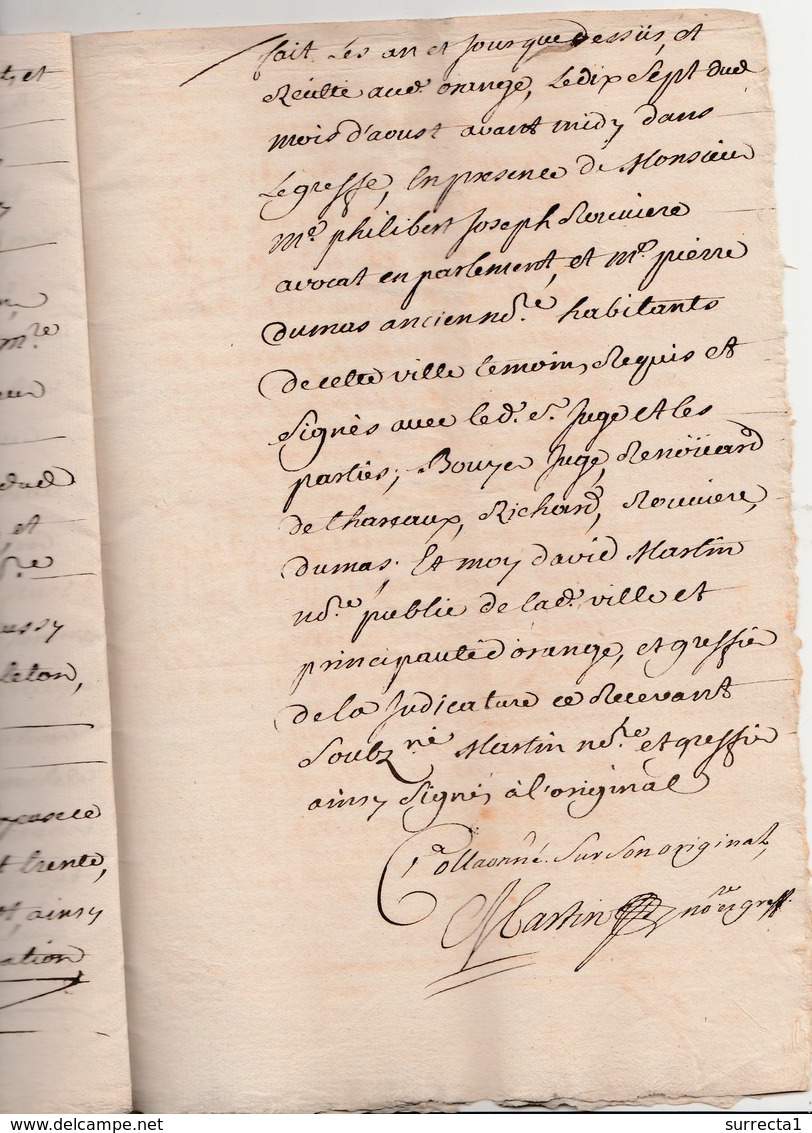 fait les an et jour que dessus, et
Récité aud. orange, le dix sept dud
mois d'aoust avant midy dans
Le greffe, En presence de Monsieur
me. philibert joseph Rouviere
avocat en parlement, et me. pierre
dumas ancien nore. habitants
de cette ville temoins Requis et
signés avec led. sr. juge et les
parties; Bouyer juge, Renoüard
de Richard, Rouviere,
dumas. Et moy david Martin
nore. public de lad. ville et
principauté d'orange, et greffier
de la judicature ce Recevant
soubzné Martin nore. et greffier
ainsy signés à l'original
Collaonné. sur son original,
Martin nore et greff.
t, et
me.
dud
, et
ussy
leton,
t trente,
ainsy
ation
surrecta1